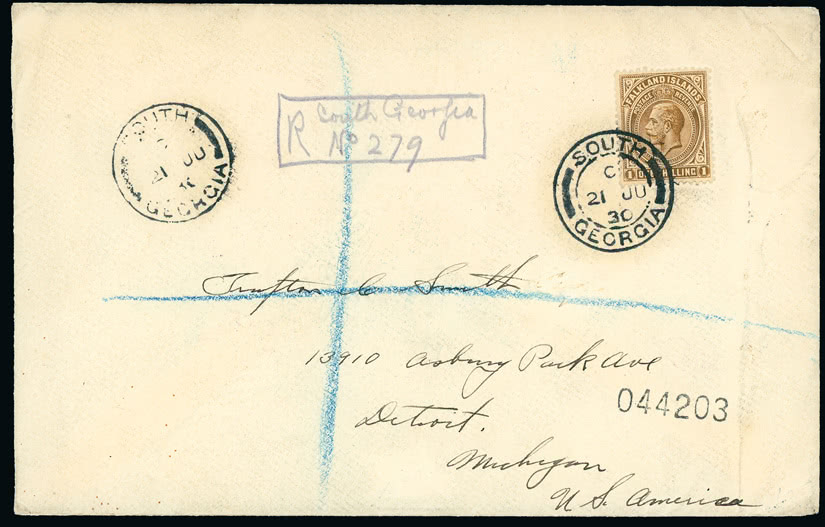 SOUTH
21 JU
GEORGIA
R South Georgia
No 279
FALKLAND ISLANDS
POSTAGE REVENUE
1 ONE SHILLING 1
SOUTH
C
21 JU
30
GEORGIA
C Smith
13910 Asbury Park Ave
044203
Detroit.
Michigan
U S. America